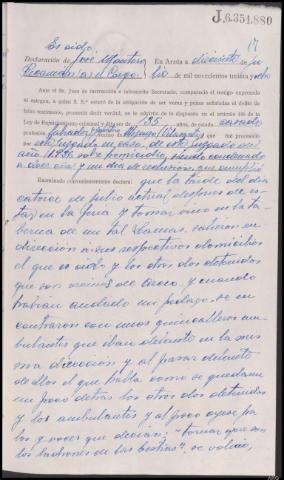 J.6.351.880
17
Es oido.
Declaración de José Montero
Recuredo (a) el Corgo. En Arzúa a diecisiete de ju
lio de mil novecientos treinta y ocho
Ante el Sr. Juez de instrucción e infrascrito Secretario, compareció el testigo expresado
al margen, a quien S. S.ª enteró de la obligación de ser veraz y penas señaladas al delito de
falso testimonio, prometió decir verdad, se le advirtió de lo dispuesto en el artículo 446 de la
Ley de Enjuiciamiento criminal y dijo ser de
profesión labrador y que fué procesado
por este Juzgado en causa de este Juzgado del
año 1925 sobre homicidio, siendo condenado
a doce años y un día de reclusión, que cumplió
Examinado convenientemente declara: que la tarde del día
catorce de julio actual, después de es-
tar en la feria y tomar vino en la ta-
berna de un tal Lamas, salieron en
dirección a sus respectivos domicilios
el que es oido y los otros dos detenidos
que son vecinos de y cuando
habían andado un pedazo, se en-
contraron con unos quincalleros am-
bulantes que iban delante en la mis-
ma dirección y al pasar delante
de ellos el que habla como se quedaran
un poco detrás los otros dos detenidos
y los ambulantes y al poco oyese pa-
los y voces que decían: "tornar que son
los ladrones de las bestias", se volvió,